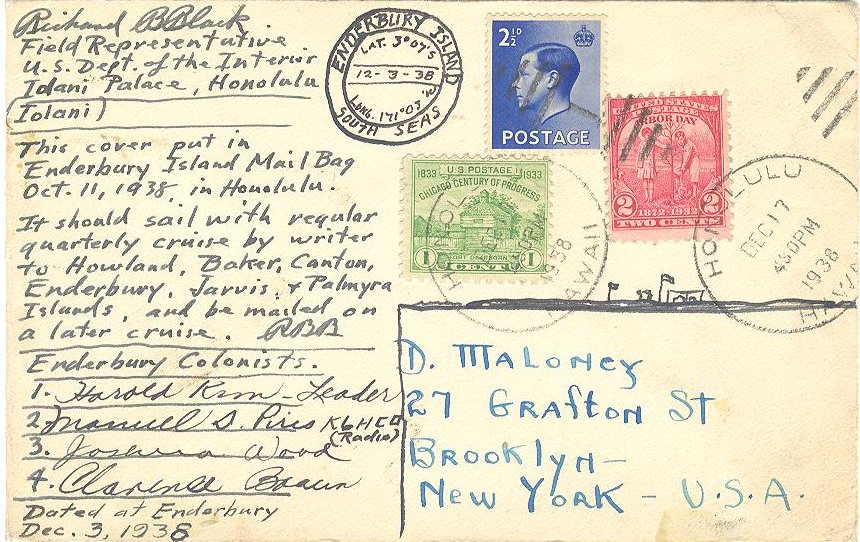 Richard B Black.
Field Representative.
U.S. Dept. of the Interior
Idani Palace, Honolulu
(Iolani)
This cover put in
Enderbury Island Mail Bag
Oct. 11, 1938, in Honolulu.
It should sail with regular
quarterly cruise by writer
to Howland, Baker, Canton,
Enderbury, Jarvis, & Palmyra
Islands, and be mailed on
a later cruise. RBB
Enderbury Colonists.
1. Harold Kim - Leader
2. Manuel S. Pires K6HCO
(Radio)
3. Joshua Wood
4. Clarence
Dated at Enderbury
Dec. 3, 1938
ENDERBURY ISLAND
LAT. 3°07'S
12-3-38
LONG. 171°03'W
SOUTH SEAS
2½D
POSTAGE
UNITED STATES
POSTAGE
ARBOR DAY
2 2
1872-1932
TWO CENTS
1833 U.S. POSTAGE 1933
CHICAGO CENTURY OF PROGRESS
FORT DEARBORN
1 CENT 1
HONOLULU
1938
HAWAII
HONOLULU
DEC 17
430PM
1938
HAWAII
D. MALONEY
27 GRAFTON ST
BROOKLYN -
NEW YORK - U.S.A.